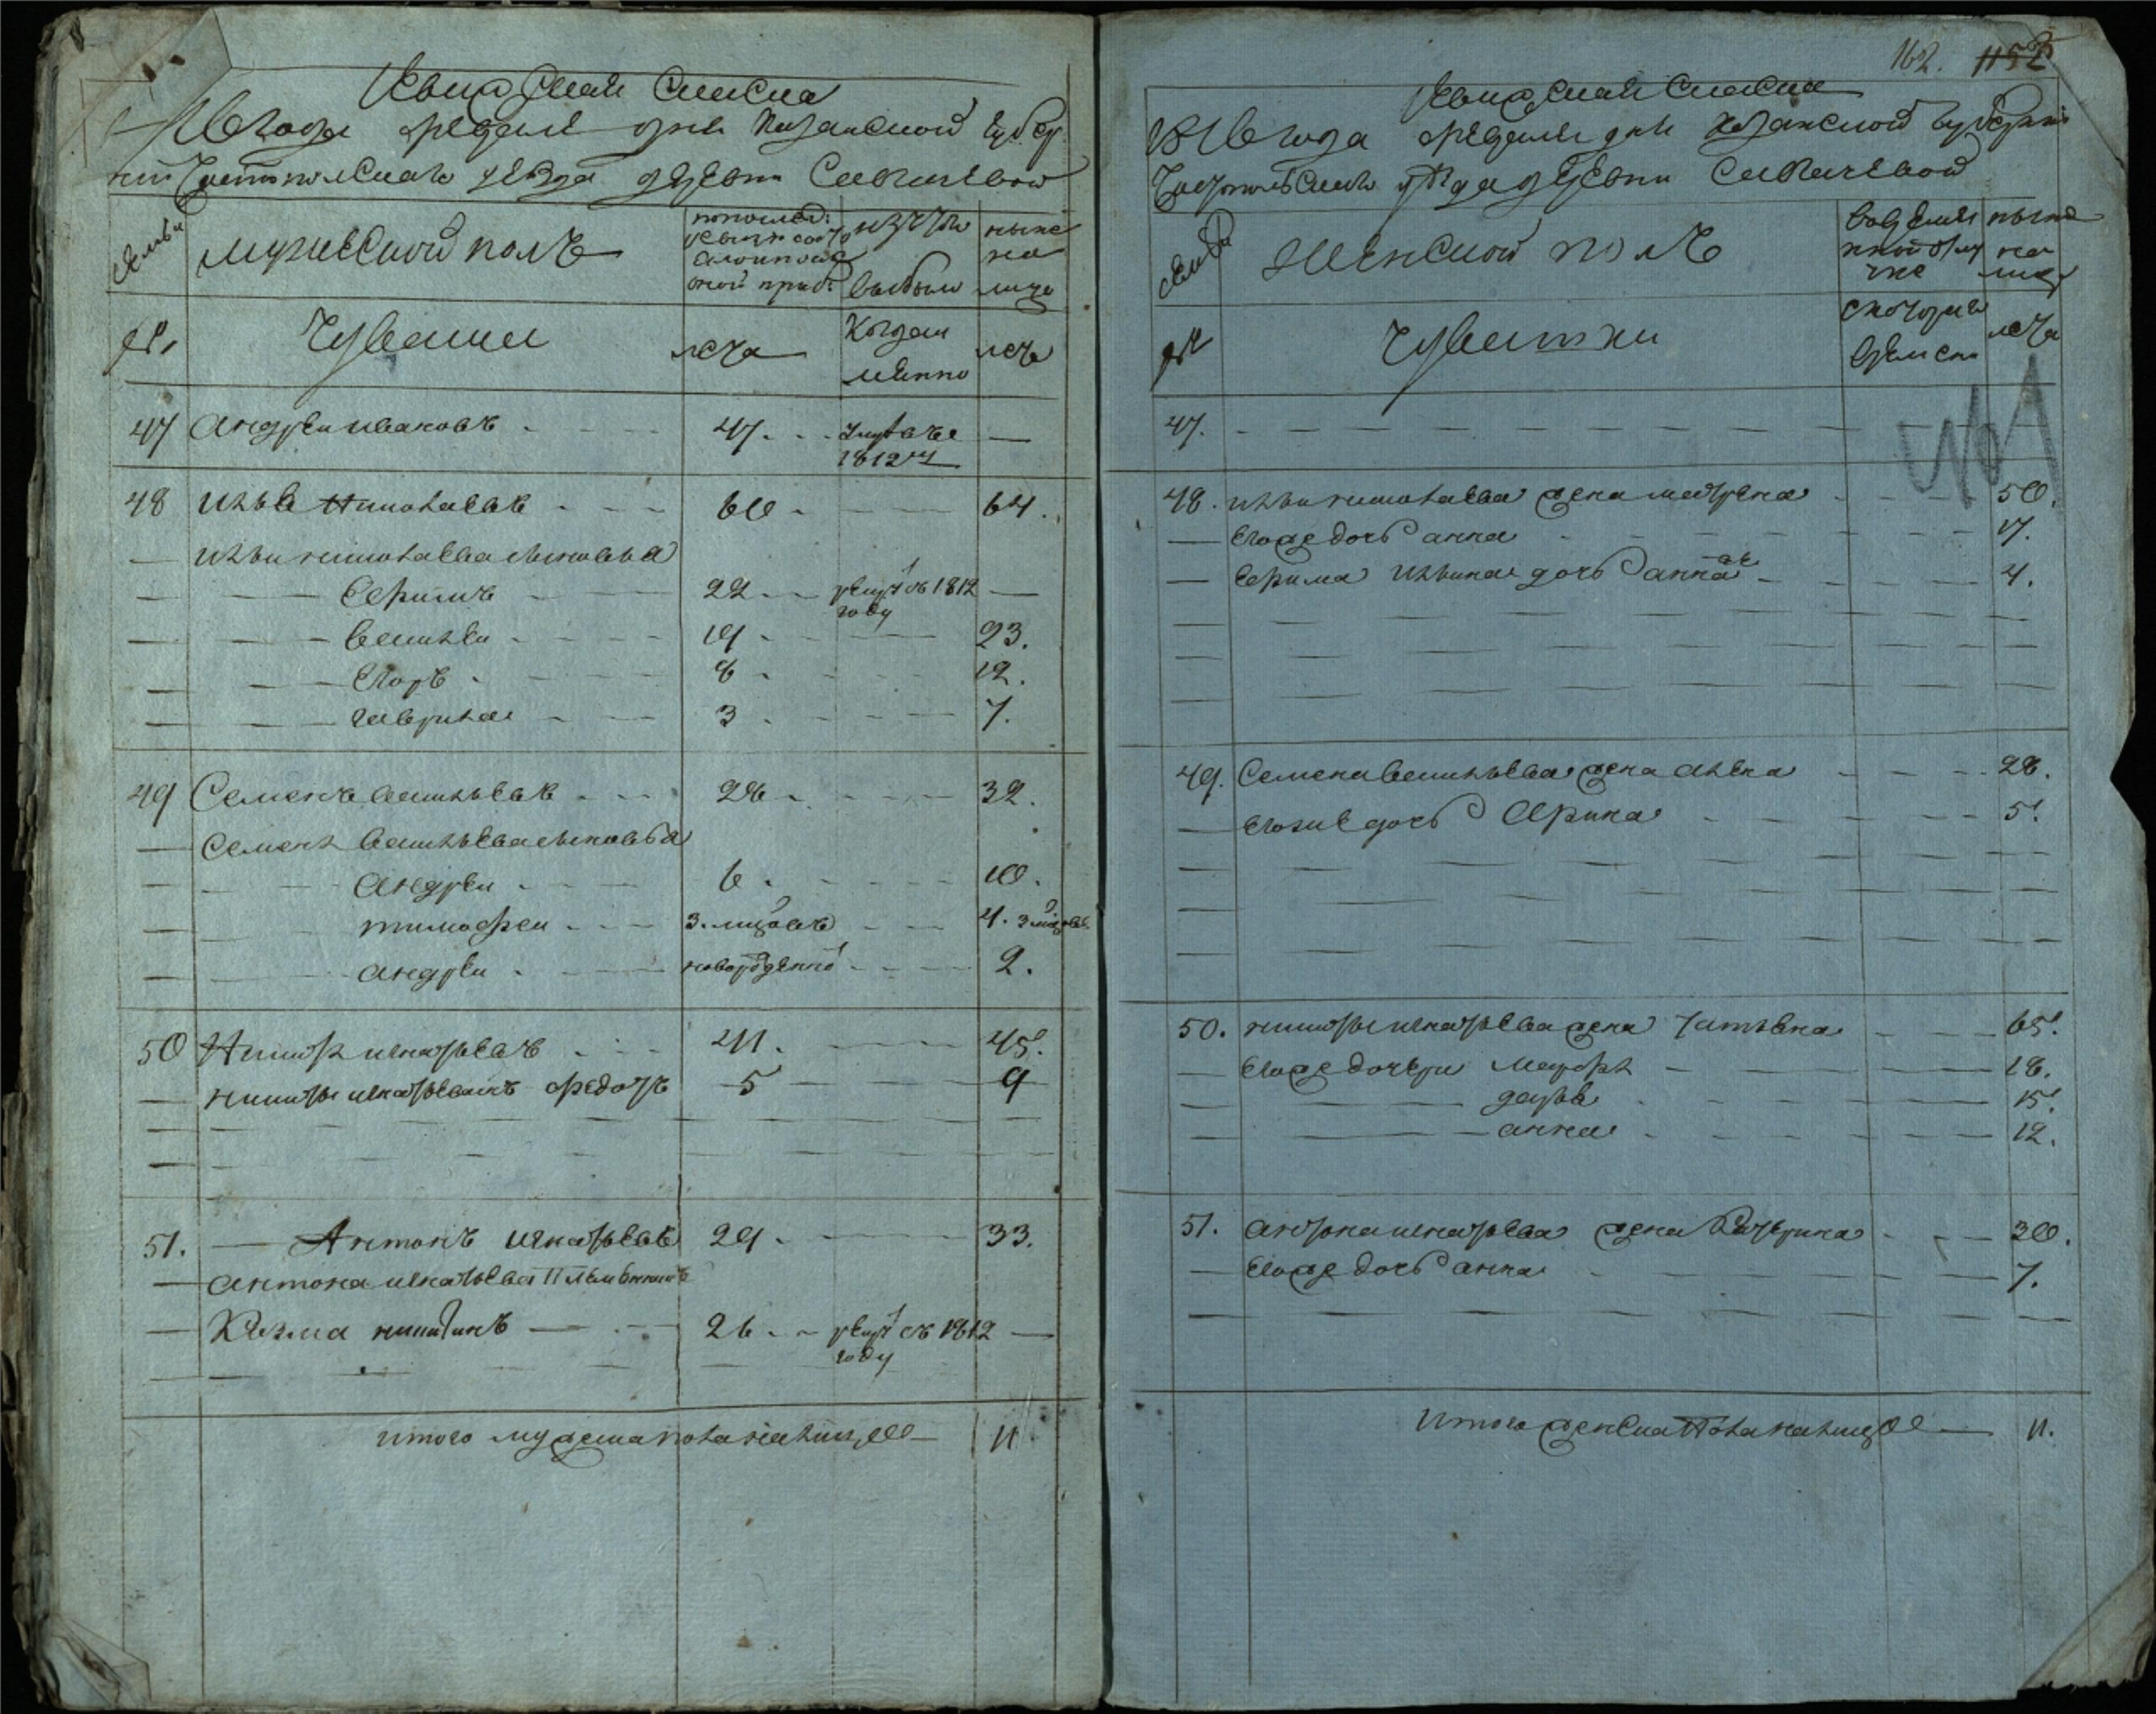 Ревижская Скаска
1816 года февраля дня Казанской губер
нии Чистопольскаго уезда деревни Савгачевой
семьи
мужеской полъ
по послед:
ревизи состо
ало и после
оной приб:
из того
выбыло
ныне
на
лицо
№
Чуваши
лета
Когда и
менно
лета
47 Андреи ивановъ 47. умре въ —
1812 г
48 Илья Николаевъ 60 64.
— Ильи николаева сыновья
Ефимъ 22 рекрут въ 1812 —
году
василеи 19 23.
Егоръ 8 12.
гаврила 3 7.
49 Семенъ васильевъ 28 32.
— Семена васильева сыновья
Андреи 6 10.
тимофеи 3. мцовъ 4. 3 мцовъ
андреи новорожденно 2.
50 Никита игнатьевъ 41. 45.
— никиты игнатьева сынъ федотъ 5 9
51. Антонъ игнатьевъ 29 33.
— антона игнатьева племянникъ
— Козма никитинъ 26 рекрут въ 1812 —
году
итого мужеска пола на лицо 11
162. 1152
Ревижская Скаска
1816 года февраля дня Казанской губернии
Чистопольскаго уезда деревни Савгачевой
семьи
женской полъ
во временной отлучке
ныне
на
лицо
№
Чувашки
с которого
времени
лета
47.
48. ильи николаева жена матрена 50.
— Его же дочь анна 17.
— Ефима Ильина дочь анна 4.
49. Семена васильева жена 28.
— Его же дочь Ирина 5.
50. никиты игнатьева жена татьяна 65.
— Его же дочери марфа 18.
дарья 15.
анна 12.
51. антона игнатьева жена Катерина 30.
— Его же дочь анна 7.
Итого женска пола на лицо 11.